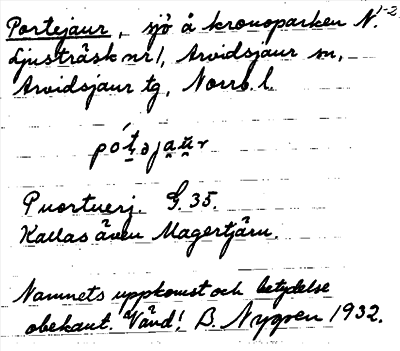 Portejaur, sjö å kronoparken N. 1-2
Ljusträsk nr 1, Arvidsjaur sn,
Arvidsjaur tg, Norrb. l.
pó́t̯əja̯u̯r
Puortuerj. G. 35.
Kallas även Magertjärn.
Namnets uppkomst och betydelse
obekant. Vänd! B. Nygren 1932.